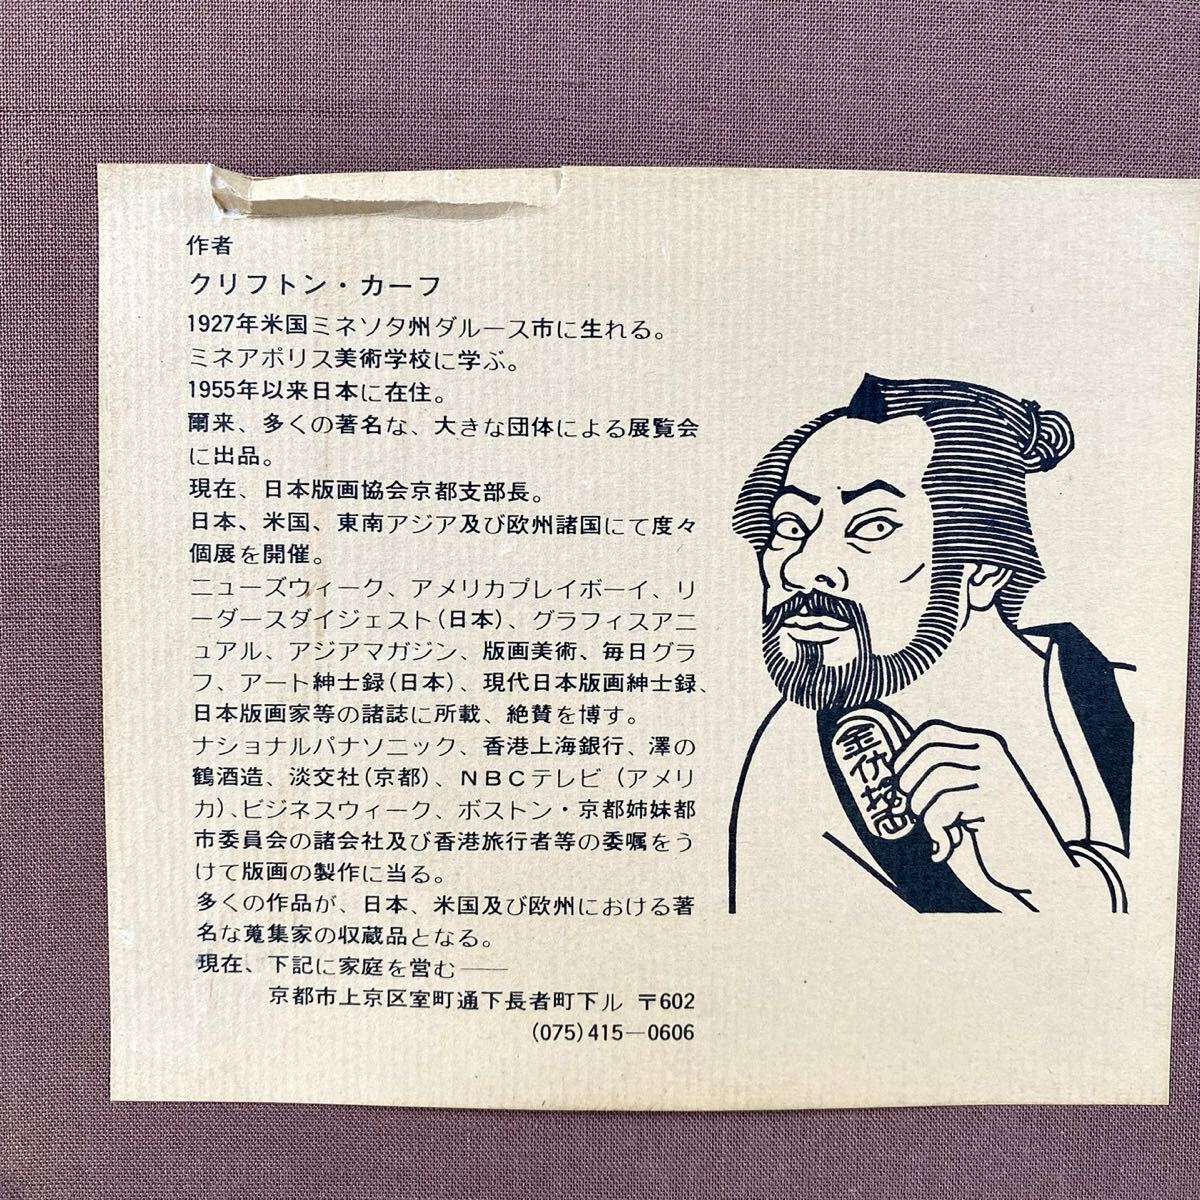 作者
クリフトン・カーフ
1927年米国ミネソタ州ダルース市に生れる。
ミネアポリス美術学校に学ぶ。
1955年以来日本に在住。
爾来、多くの著名な、大きな団体による展覧会
に出品。
現在、日本版画協会京都支部長。
日本、米国、東南アジア及び欧州諸国にて度々
個展を開催。
ニューズウィーク、アメリカプレイボーイ、リ
ーダースダイジェスト(日本)、グラフィスアニ
ュアル、アジアマガジン、版画美術、毎日グラ
フ、アート紳士録(日本)、現代日本版画紳士録、
日本版画家等の諸誌に所載、絶賛を博す。
ナショナルパナソニック、香港上海銀行、澤の
鶴酒造、淡交社(京都)、NBCテレビ(アメリ
カ)、ビジネスウィーク、ボストン・京都姉妹都
市委員会の諸会社及び香港旅行者等の委嘱をう
けて版画の製作に当る。
多くの作品が、日本、米国及び欧州における著
名な蒐集家の収蔵品となる。
現在、下記に家庭を営む——
京都市上京区室町通下長者町下ル 〒602
(075)415—0606